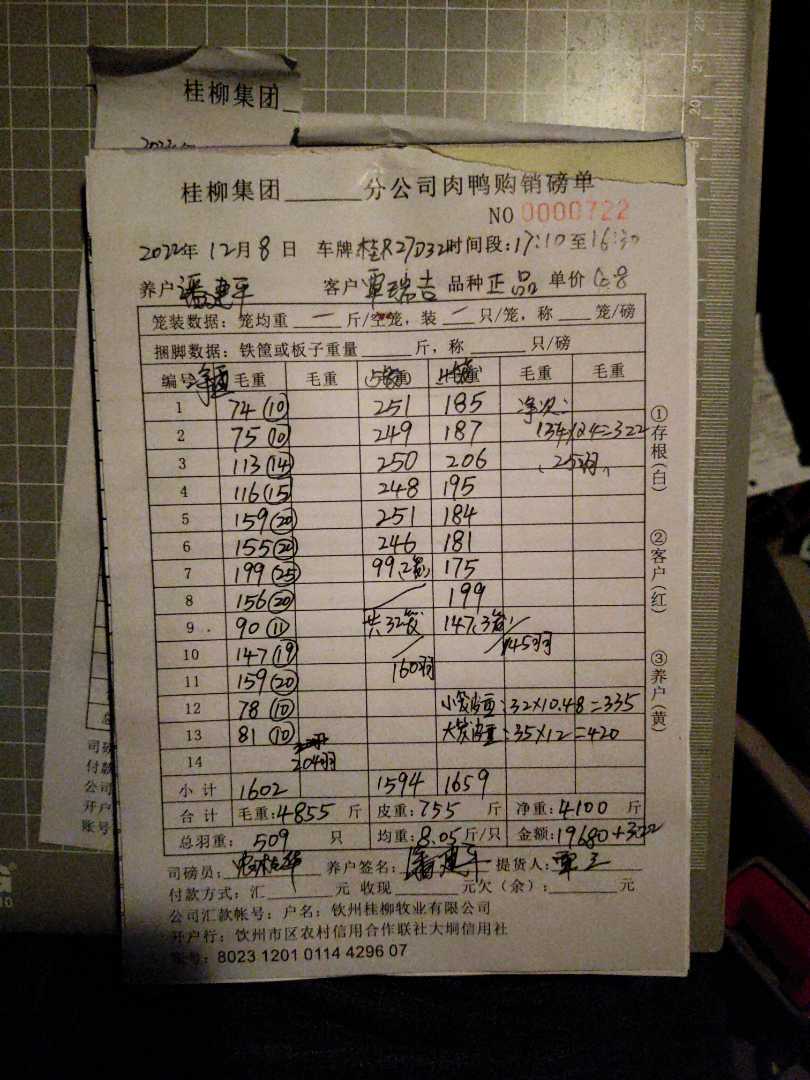 桂柳集团
桂柳集团______分公司肉鸭购销磅单
NO 0000722
2022年 12月 8日 车牌 桂R27D32 时间段:17:10至16:30
养户 潘建平 客户 覃瑞吉 品种 正品 单价
笼装数据:笼均重 一 斤/空笼,装 一 只/笼,称 ___ 笼/磅
捆脚数据:铁筐或板子重量 ______ 斤,称 ______ 只/磅
编号 净重 毛重 毛重 毛重 毛重
1 74(10) 251 185 净次:
2 75(10) 249 187 134×2.4=322
3 113(14) 250 206 (25羽)
4 116(15) 248 195
5 159(20) 251 184
6 155(20) 246 181
7 199(25) 99(2笼) 175
8 156(20) 199
9 90(11) 共32笼 147(3笼)
10 147(19) 145羽
11 159(20) 160羽
12 78(10) 小笼皮重:32×10.48=335
13 81(10) 大笼皮重:35×12=420
14 204羽
小计 1602 1594 1659
合计 毛重:4855 斤 皮重:755 斤 净重:4100 斤
总羽重: 509 只 均重:8.05斤/只 金额:19680+322
司磅员: 养户签名:潘建平 提货人:覃
付款方式:汇______元 收现______元欠(余):______元
公司汇款帐号:户名:钦州桂柳牧业有限公司
开户行:钦州市区农村信用合作联社大垌信用社
账号:8023 1201 0114 4296 07
①存根(白)
②客户(红)
③养户(黄)
司磅
付款
公司
开户
账号